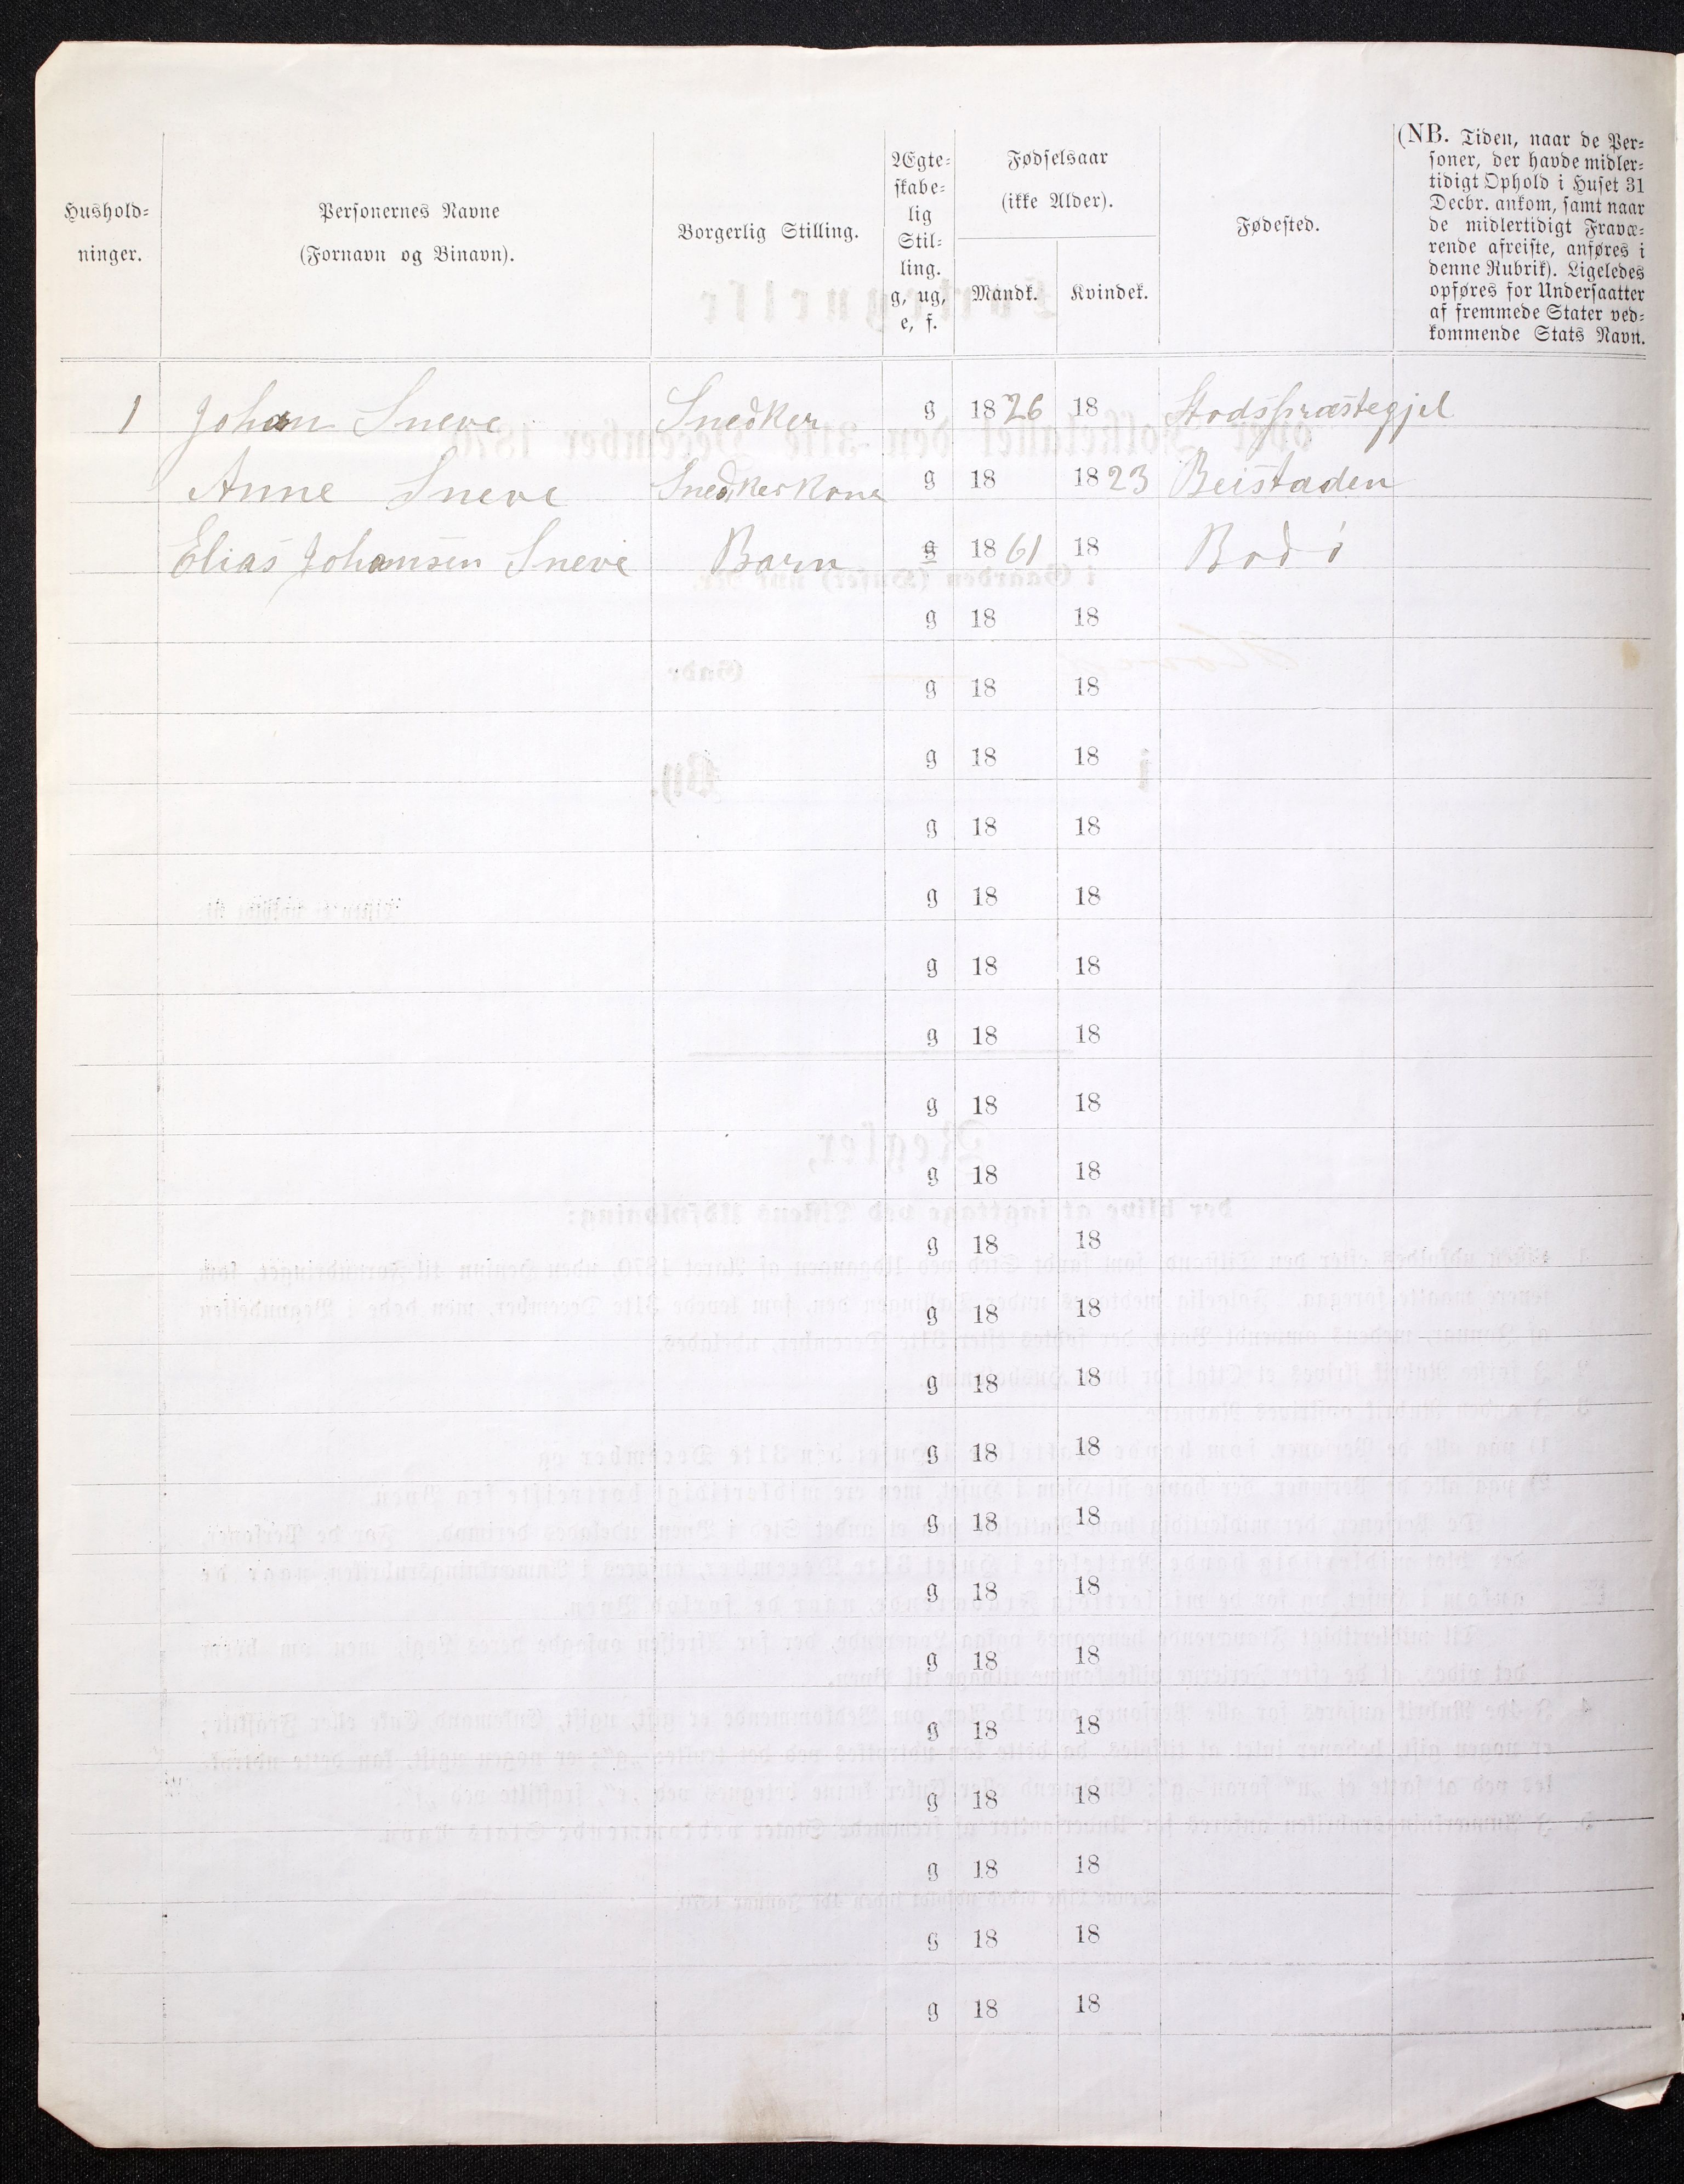 Hushold-
ninger.
Personernes Navne
(Fornavn og Binavn).
Borgerlig Stilling.
Ægte-
skabe-
lig
Stil-
ling.
g, ug,
e, f.
Fødselsaar
(ikke Alder).
Mandk. Kvindek.
Fødested.
(NB. Tiden, naar de Per-
soner, der havde midler-
tidigt Ophold i Huset 31
Decbr. ankom, samt naar
de midlertidigt Fravæ-
rende afreiste, anføres i
denne Rubrik). Ligeledes
opføres for Undersaatter
af fremmede Stater ved-
kommende Stats Navn.
1 Johan Sneve Snedker g 1826 18 Stodspræstegjel
Anne Sneve Snedkerkone g 18 1823 Beistaden
Elias Johansen Sneve Barn g 1861 18 Bodö
g 18 18
g 18 18
g 18 18
g 18 18
g 18 18
g 18 18
g 18 18
g 18 18
g 18 18
g 18 18
g 18 18
g 18 18
g 18 18
g 18 18
g 18 18
g 18 18
g 18 18
g 18 18
g 18 18
g 18 18
g 18 18